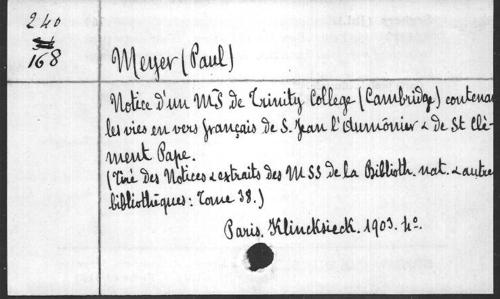 240
168
Meyer (Paul)
Notice d'un MS de Trinity College (Cambridge) contenan
les vies en vers français de S. Jean l'Aumônier & de St Clé-
ment Pape.
(Tiré des Notices & extraits des MSS de la Biblioth. nat. & autre
bibliothèques: Tome 38.)
Paris. Klincksieck. 1903. 4o.